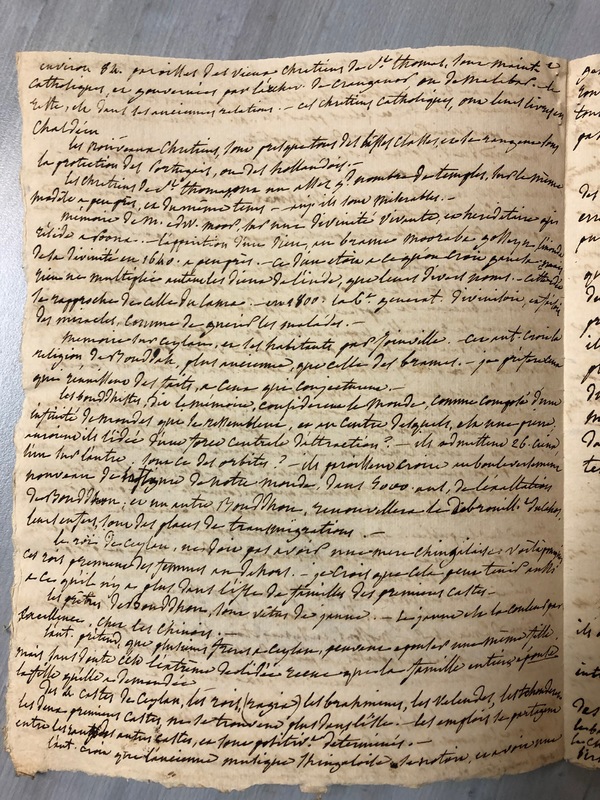 environ 84. paroisses des vieux chrétiens de St. thomas, sont maint.
Catholiques, et gouvernées par l'évêq. de Cranganor ou de Malabar. - le
reste, est dans ses anciennes relations. - ces chrétiens catholiques, ont leurs livres en
Chaldéen
les nouveaux Chrétiens, sont presque tous des basses classes, et se rangent sous
la protection des Portugais, ou des hollandois. -
les chrétiens de St. thomas ont un assez gd. nombre de temples, sur le même
modèle à peu près, et du même tems - mais ils sont misérables. -
mémoire de M. edw. moor, sur une divinité vivante, et héréditaire qui
réside à Poona. - l'apparition d'un dieu, au brame
de la divinité en 1640. à peu près. - ce dieu étoit à ce que croit
rien ne multiplie autant les dieux de l'inde, que leurs divers noms. - cette
se rapproche de celle du lama. - en 1800. la
des miracles, comme de guérir les malades. -
mémoire sur Ceylan, et ses habitants, par Joinville. - cet aut. croit la
religion de Bouddah, plus ancienne, que celle des brames. - je préfère ceux
qui recueillent des faits, à ceux qui conjecturent. -
les bouddhistes, dit le mémoire, considèrent le monde, comme composé d'une
infinité de mondes qui se ressemblent, et au centre desquels, est une
auroient ils l'idée d'une force centrale d'attraction? - ils admettent 26. cieux
l'un sur l'autre. sont ce des orbites? - ils
nouveau de notre monde, dans 5000. ans, de l'exaltation
de Bouddhou, et un autre Bouddhou, renouvellera le débrouill. du chaos,
leurs enfers, sont des places de transmigrations. -
le roi de Ceylan, ne doit pas avoir une mère chingalaise; voilà
ces rois prennent des femmes au dehors. - je crois que cela peut tenir aussi
à ce qu'il n'y a plus dans l'isle de familles des premières castes. -
les prêtres de Bouddhou, sont vêtus de jaune. - Le jaune est la couleur par
excellence, chez les Chinois. -
l'aut. prétend, que plusieurs frères à Ceylan, peuvent épouser une même fille.
mais sans doute c'est l'extrême de l'idée reçue que la famille entière épouse
la fille qu'elle a demandée
Des 4. castes de Ceylan, les rois, (ragia) les brahmens, les
les deux premières castes, ne se trouvent plus dans l'isle. - les emplois se partagent
entre les autres castes, et sont positivt. déterminés. -
l'aut. croit que l'ancienne musique chingaloise se notoit, et avoit une